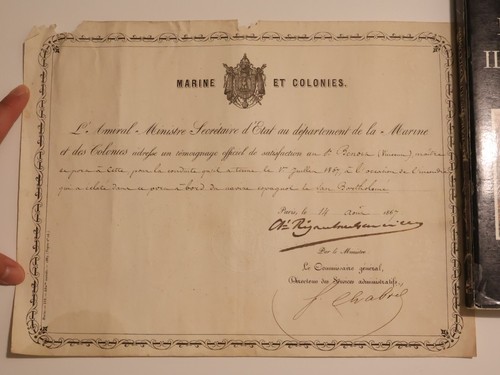 MARINE ET COLONIES.
L'Amiral Ministre Secrétaire d'Etat au département de la Marine
et des Colonies adresse un témoignage officiel de satisfaction au Sr Benoit (Vincent),
à Cette, pour la conduite qu'il a tenue le 1er Juillet 1867, à l'occasion de l'incendie
qui a éclaté dans ce port à bord du navire espagnol le San Bartholomé
Paris, le 14 août 1867
Par le Ministre:
Le Commissaire général,
(Directeur du Service administratif),
Chabrol
II